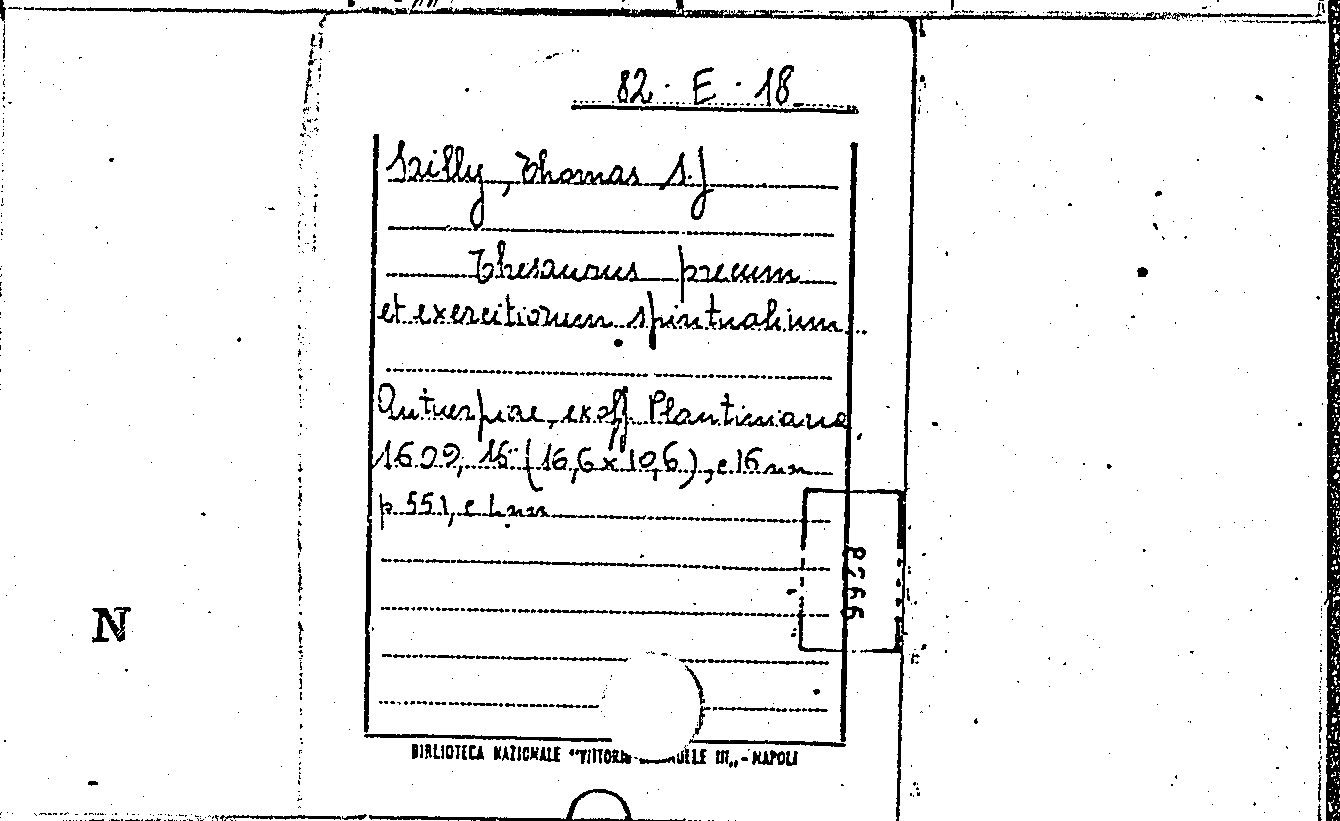 82 · E · 18
Sailly, Thomas S.J
Thesaurus precum
et exercitiorum spiritualium
Antuerpiae, ex off Plantiniana,
1609, 16° (16,6 x 10,6), c 16 nn
p 551, c nn
8566
N
BIBLIOTECA NAZIONALE "VITTORIO UELE III„ - NAPOLI